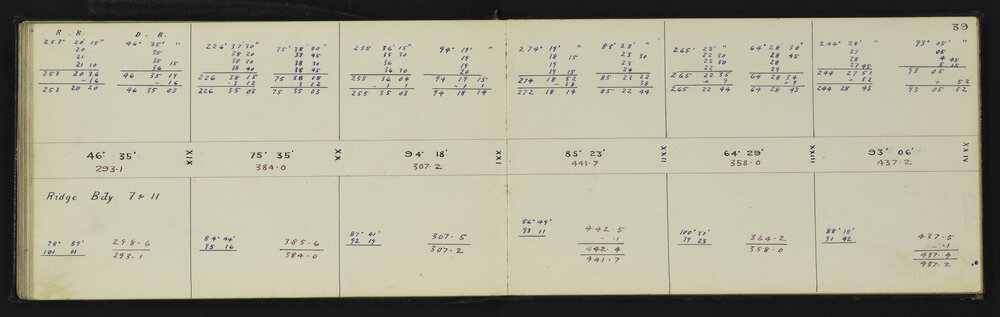 39
R. B. D. B.
253° 20' 15" 46° 35' "
20 35
21 35 15
21 10 36
253 20 36 46 35 19
- 16 - 16
253 20 20 46 35 03
226° 37' 30" 75° 38' 00"
38 20 37 45
38 30 38 30
38 40 38 45
226 38 15 75 38 15
226 35 03 75 35 03
255 36' 15" 94° 19' "
35 30 19
36 19
36 30 20
255 36 04 94 19 15
- 1 - 1 - 1
255 35 03 94 18 14
274° 19' " 85° 23' "
18 15 23 30
19 23
19 15 24
274 18 52 85 23 22
- 38 38
272 18 14 85 22 44
265° 23' " 64° 28' 30"
22 30 28 45
22 50 28
22 29
265 22 35 64 28 34
+ 9 + 9
265 22 44 64 28 43
244° 28' " 93° 05' "
27 05
28 4 45
27 45 5 15
244 27 51 93 05
+ 52 + 52
244 28 43 93 05 52
46° 35'
293.1
XIX
75° 35'
384.0
XX
94° 18'
307.2
XXI
85° 23'
441.7
XXII
64° 29'
358.0
XXIII
93° 06'
437.2
XXIV
Ridge Bdy 7 & 11
78° 59' 298.6
101 01 293.1
84° 44' 385.6
95 16 384.0
87° 41' 307.5
92 19 307.2
86° 49'
93 11 442.5
- .1
442.4
441.7
100° 37' 364.2
79 23 358.0
88° 18' 437.5
91 42 - .1
437.4
437.2